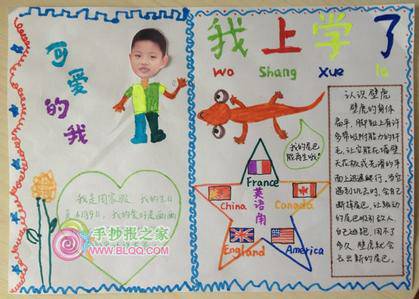 可爱的我
我是周家
我的生日
是6月9日，我的爱好是画画
手抄报之家
WWW.BLQQ.COM
我上学了
wo Shang xue le
我的尾巴
能再生哦！
France
China
Canada
英语角
England
America
认识壁虎
壁虎的身体
扁平，脚趾上有许
多带吸附能力的纤
毛，让它能在墙壁
天花板或光滑的平
面上迅速爬行，当它
遇到危险时，会自己
断掉尾巴，让跳动的
尾巴吸引敌人，
自己逃跑，用不了
多久，壁虎就会
长出新的尾巴。